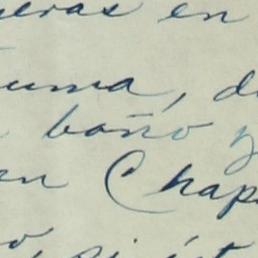 eras en
uma, d
baño y
en Chap